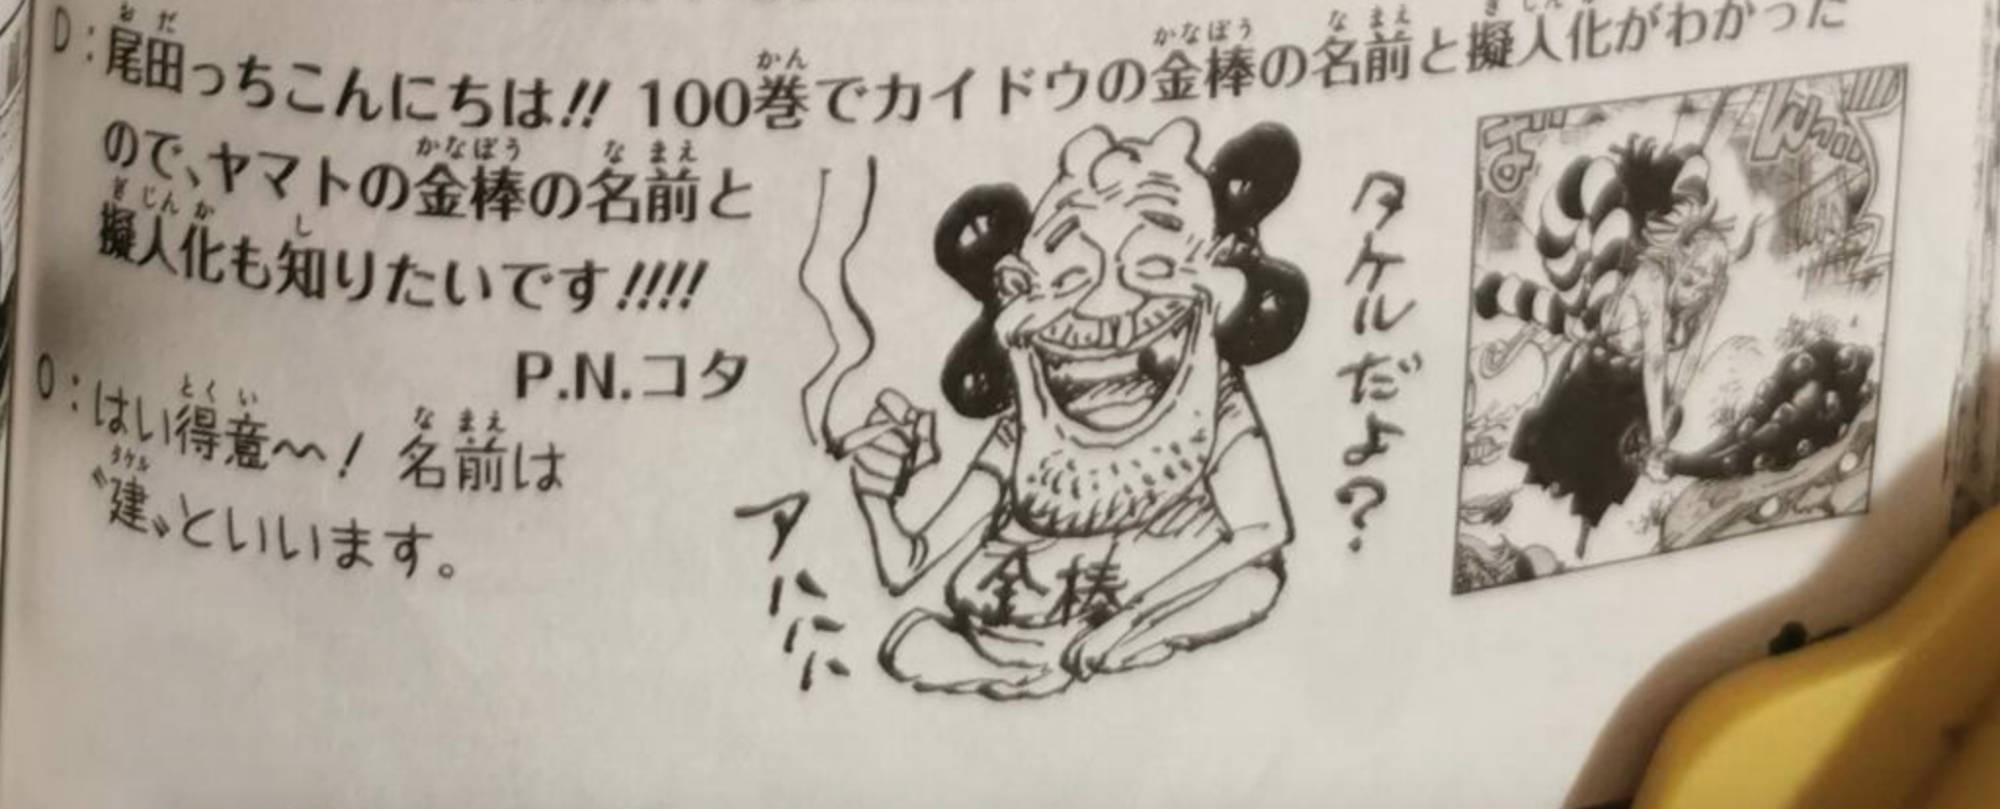 D：尾田っちこんにちは!! 100巻でカイドウの金棒の名前と擬人化がわかった
ので、ヤマトの金棒の名前と
擬人化も知りたいです!!!!
P.N.コタ
O：はい得意〜〜！ 名前は
〝建〟といいます。
タケルだよ？
アハハハ
金棒